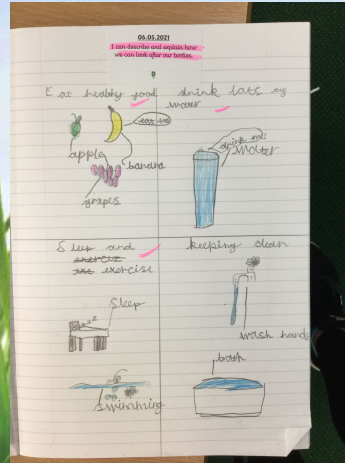 06.05.2021
I can describe and explain how
we can look after our bodies.
Eat healthy food
drink lots of
water
eat me
apple
banana
grapes
drink me!
water
Sleep and
exercize
exe exercise
Sleep
zzz
swimming
keeping clean
wash hands
bath